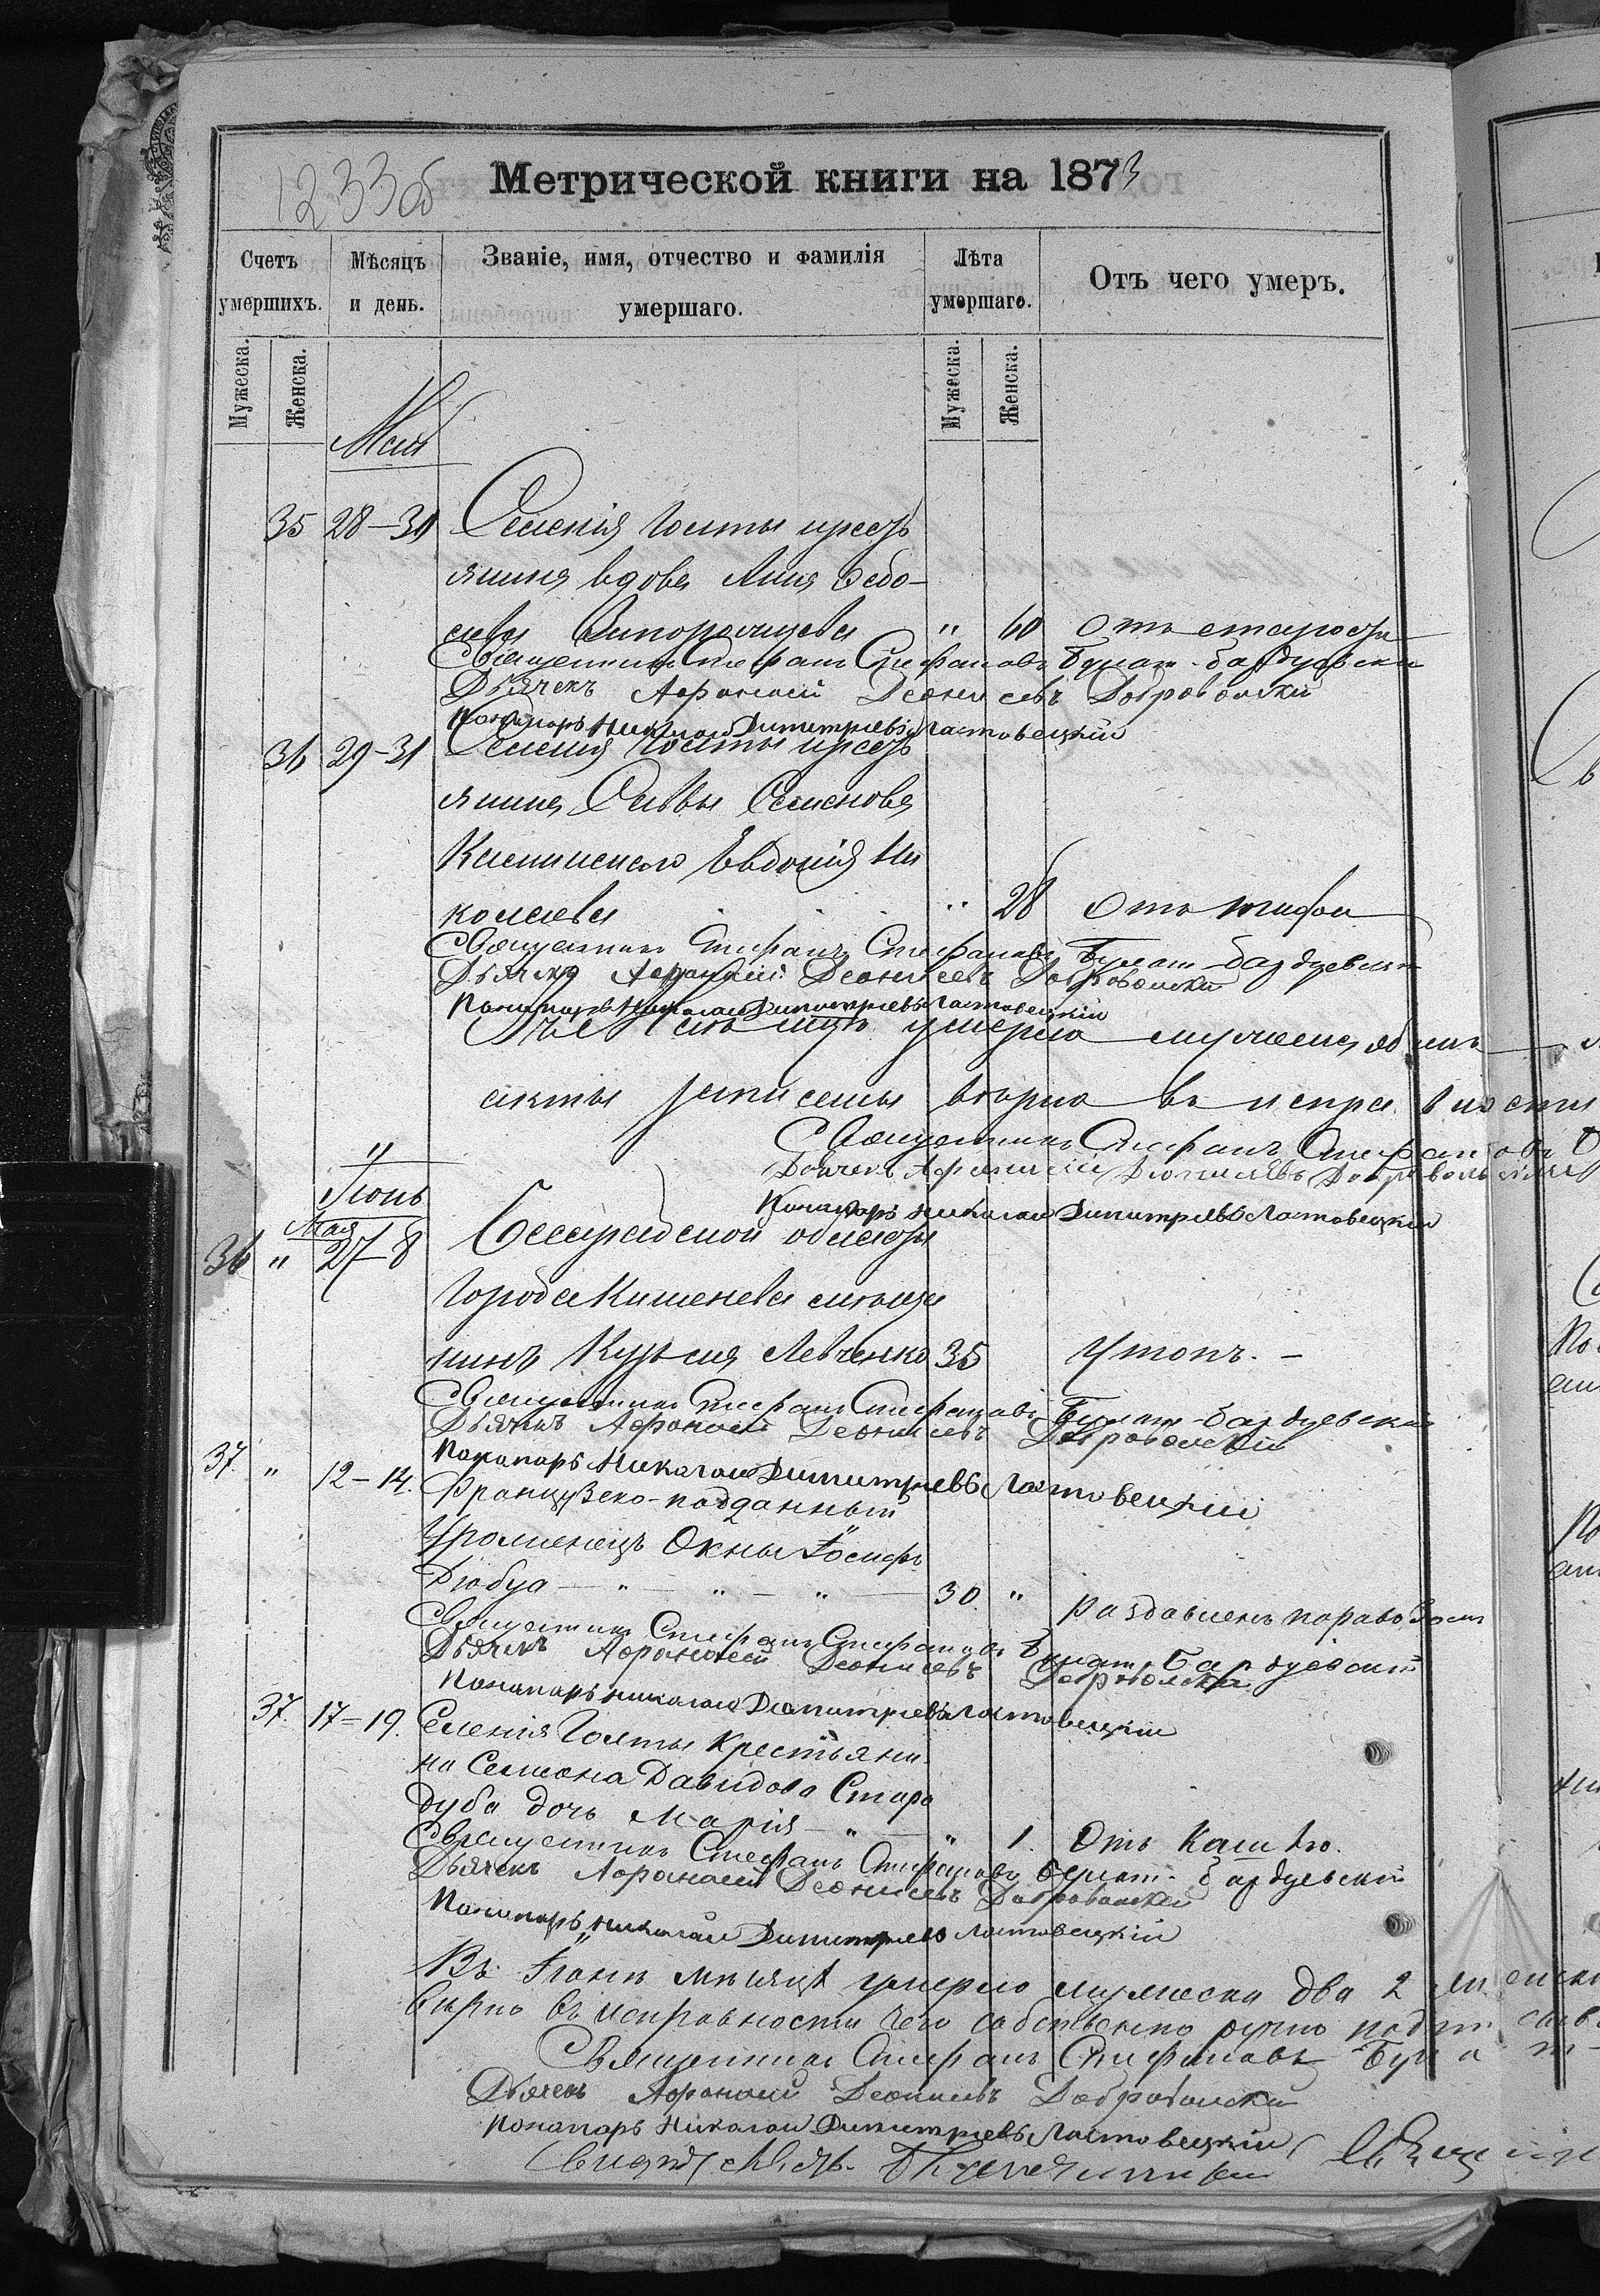 1233об
Метрической книги на 1873
Счетъ умершихъ.
Мѣсяцъ и день.
Званіе, имя, отчество и фамилія умершаго.
Лѣта умершаго.
Отъ чего умеръ.
Мужеска.
Женска.
Мужеска.
Женска.
Май
35 28–31 Селенія Голты крестъ
янина вдова Анна
" 60 Отъ старости
Священникъ Стефанъ Стефановъ Булат-Бардуевски
Дьячекъ Афанасій Деонисевъ Добровольски
Понамарь Николай Димитріевъ Лотовецкій
36 29–31 Селенія Голты крестъ
янина Саввы Семенова
Евдокія Ни
колаева " 28 Отъ тифа
Священникъ Стефанъ Стефановъ Булат-Бардуевски
Дьячекъ Афанасій Деонисевъ Добровольски
Понамарь Николай Димитріевъ Лотовецкій
умерло
акты записаны вѣрно въ исправности
Священникъ Стефанъ Стефановъ
Дьячекъ Афанасій Деонисіевъ Добровольскій
Понамарь Николай Димитріевъ Лотовецкій
Іюнь
Мая
36 " 27–8 Бессарабской области
города Кишенева мѣща
нинъ Кузьма Левченко 35 Утопъ. –
Священникъ Стефанъ Стефановъ Булат-Бардуевскій
Дьячекъ Афанасій Деонисевъ Добровольскій
Понамарь Николай Димитріевъ Лотовецкій
37. " 12–14. Французско-подданный
Уроженецъ Окны Іосифъ
Дюбуа — " — " — " — 30. " раздавленъ паравозомъ
Священникъ Стефанъ Стефановъ Булат-Бардуевскій
Дьячекъ Афанасій Деонисевъ Добровольски
Понамарь Николай Димитріевъ Лотовецкій
37. 17–19. Селенія Голты Крестьяни
на Семена Давидова Старо
дуба дочь Марія — " — " 1. Отъ Кашлю.
Священникъ Стефанъ Стефановъ Булат-Бардуевскій
Дьячекъ Афанасій Деонисевъ Добровольскій
Понамарь Николай Димитріевъ Лотовецкій
Въ Іюнѣ мѣсяцѣ умерло мужеска два 2
вѣрно въ исправности чего собственно ручно
Священникъ Стефанъ Стефановъ Була т-
Дьячекъ Афанасій Деонисевъ Добровольски
Понамарь Николай Димитріевъ Лотовецкій